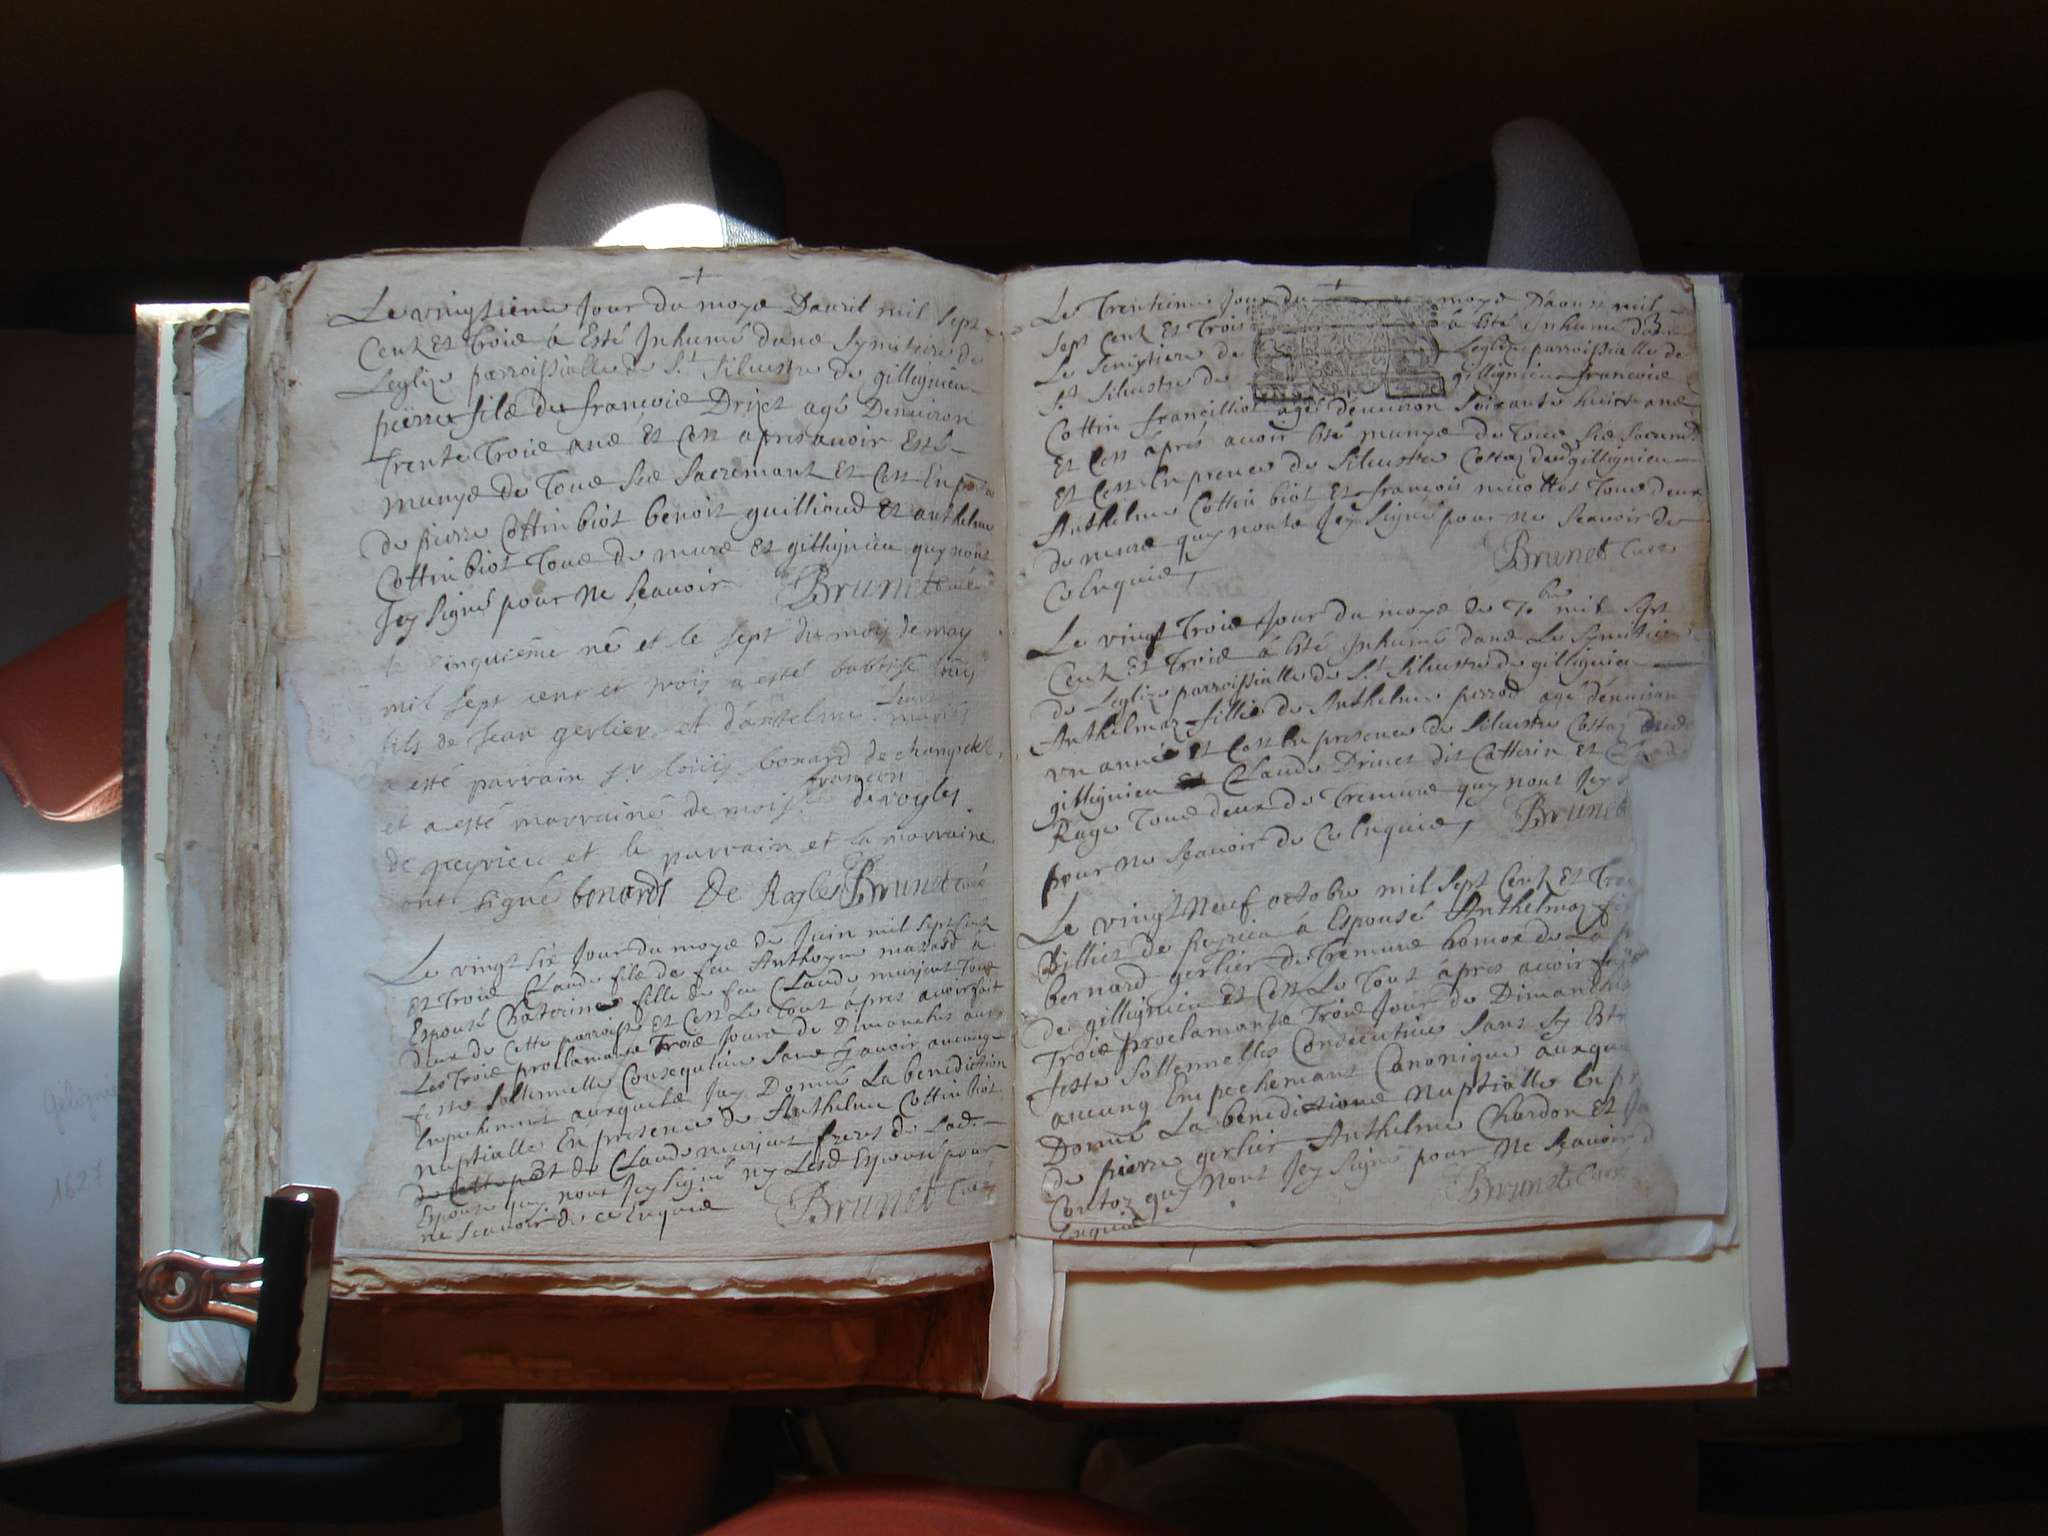 Le vingtieme Jour du moys Dauril mil sept
Cent Et Trois à Esté Inhumé dans Symitiere de
Leglize parroissialle de St Siluestre de gillignieu
pierre fils de françois Driuet agé Denuiron
Trente Trois ans Et Cest apres auoir Esté
munys de Tous Ses Sacremant Et Cest En
de pierre Cottin biot benoit guillioud Et anthelme
Cottin biot Tous de mure Et gillignieu quy nont
Jey signé pour ne sçauoir Brunet curé
cinquiême né et le sept du mois de may
mil sept cent et trois a esté babtisé louis
fils de Jean gerlier et d'antelme
a esté parrain sr louis bonard de
françon
et a esté marraine de moiss de rogles
de peyrieu et le parrain et la marraine
ont signé bonard De Rogles Brunet curé
Le vingt six Jour du moys de Juin mil sept Cent
Et Trois Claude fils de feu Anthoyne a
Espousé Chaterine fille de feu Claude murjeat Tous
deux de Cette parroisse Et Cest Le Tout âpres auoir fait
Les Trois proclamants Trois Jours de Dimanches aux
feste sollennelle Consequtiue sans Jy auoir aucung
Empechement auxquels Jay Donné La benediction
nuptialle En presence de Anthelme Cottin biot
de Claude murjeat freres de Lad.
Espouse quy nont Jey signé ny Lesd Espousé pour
ne scauoir de ce Enquis Brunet Curé
Le Trentieme Jour du moys Daoust mil
sept Cent Et Trois à Esté Inhumé dans
Le Semistiere de Leglize parroissialle de
St Siluestre de gillignieu francoise
Cottin francilliot agés denuiron Soixante huict ans
Et Cest âprés auoir Esté munys de Tous Ses Sacremt
Et Cest En presence de Siluestre Costaz de gillignieu
Anthelme Cottin biot Et françois micottis Tous deux
de mure quy nonts Jey Signé pour ne Scauoir de
Ce Enquis Brunet Curé
Le vingt Trois Jour du moys de 7bre mil sept
Cent Et Trois à Esté Inhumé dans Le Symitiere
de Leglize parroissialle de St Siluestre de gillignieu
Anthelmaz fillie de Anthelme perrod agé dénuiron
vn année Et Cest En presence de Siluestre Costaz
gillignieu Et Claude Driuet dit Catterin Et
Rage Tous deux de Tremure quy nont Jey
pour ne sçauoir de Ce Enquis Brunet
Le vingt Neuf octobre mil sept Cent Et
billiet de peyrieu à Espousé Anthelmaz
bernard gerlier de Tremure
de gillignieu Et Cest Le Tout âpres auoir
Trois proclamants Trois Jour de Dimanches
feste sollennelles Consecutiue Sans Jy
aucung Empechemant Canonique auxquels
Donné La benedictions Nuptialle En
de pierre gerlier Anthelme Chardon Et
Contoz quy Nont Jey Signé pour Ne Sçauoir
Enquis Brunet Curé
1627